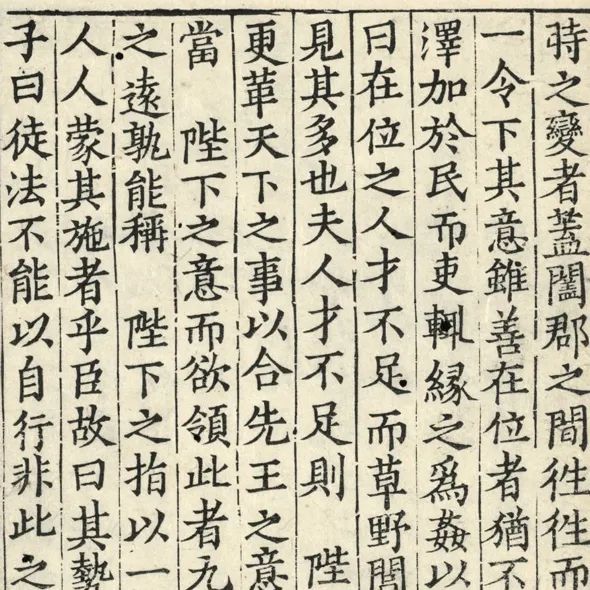 時之變者蓋闔郡之間徃徃而
一令下其意雖善在位者猶不
澤加於民而吏輒緣之爲姦以
曰在位之人才不足而草野閭
見其多也夫人才不足則 陛
更革天下之事以合先王之意
當 陛下之意而欲領此者九
之遠孰能稱 陛下之指以一
人人蒙其施者乎臣故曰其勢
子曰徒法不能以自行非此之